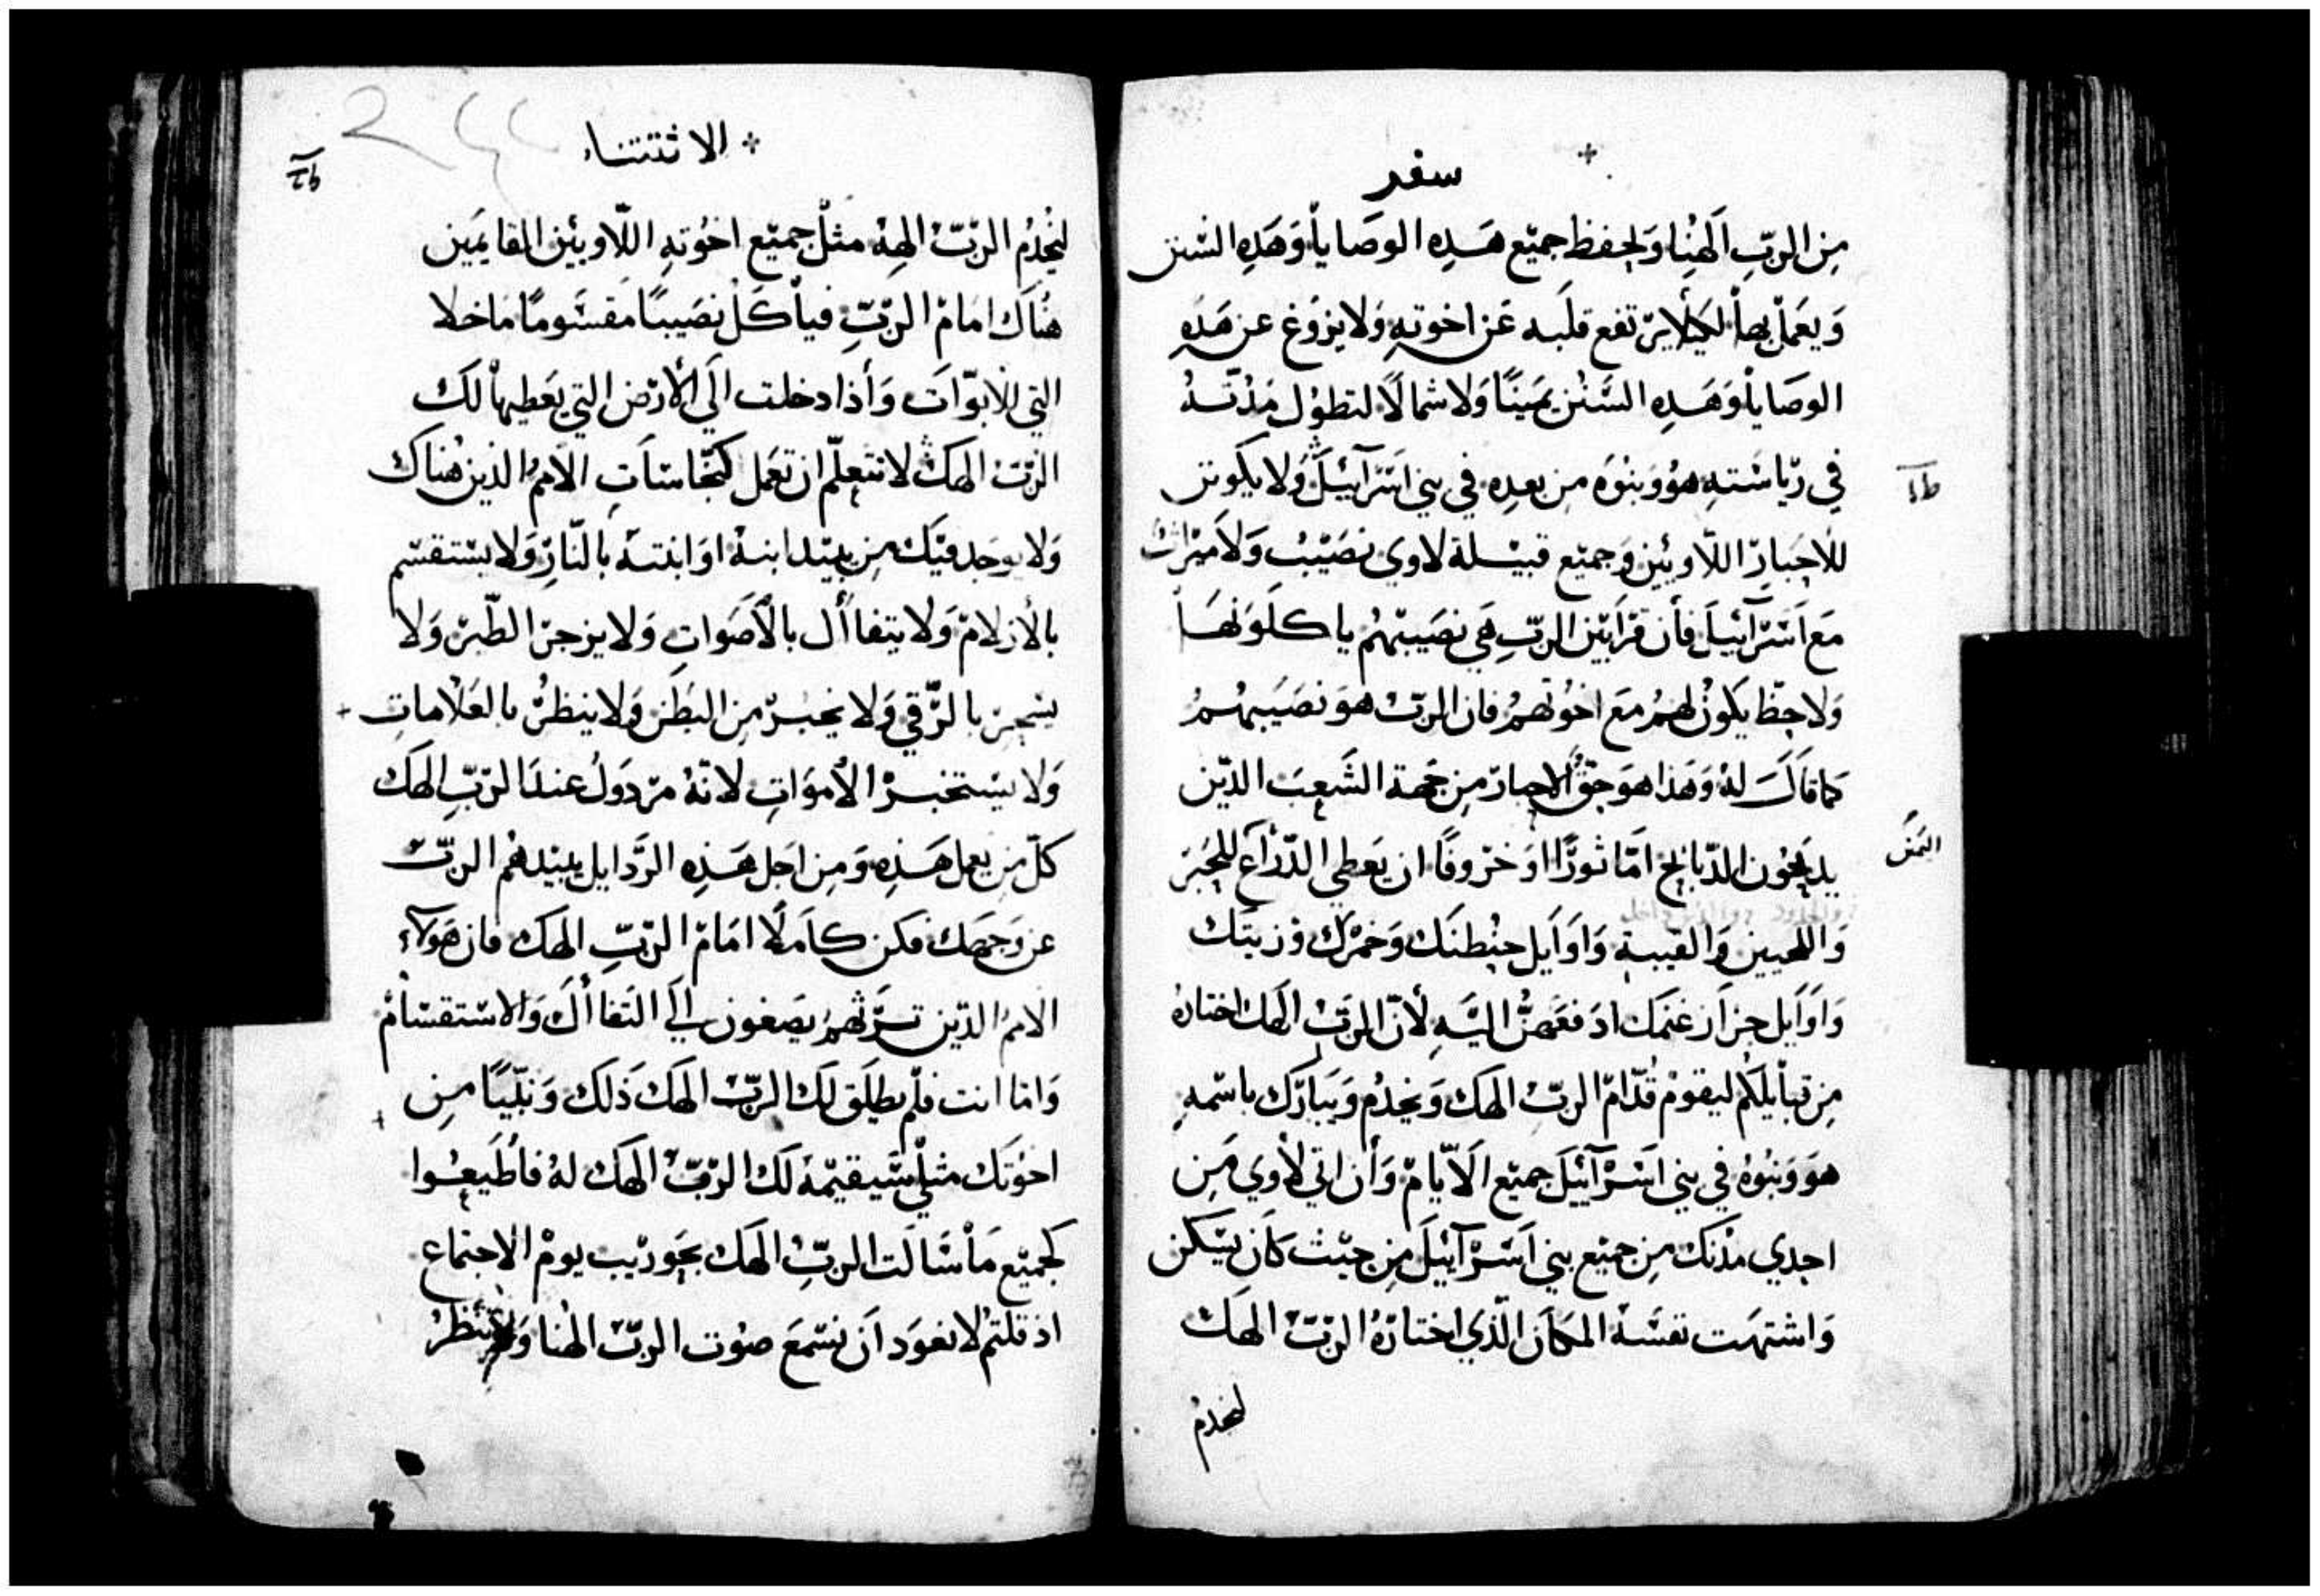 سفر
مِن الربّ الَهِنا وَيحفظ جميع هَذِه الوصَايا وَهَذِهِ السّنن
وَيعَمل بها لكيلا يرتفع قلبَه عَن اخوتهِ وَلا يزوغ عن هَذِهِ
الوصَايا وَهَذِهِ السَّنن يَمينًا وَلا شمالاً لتطول مدّته
في رياسَتهِ هوُ وَبنوَه من بعدِه في بني اسَرآئيلَ وَلا يكون
للاحبار اللاويين وَجميع قبيلة لاوي نصَيبْ وَلا ميراث
مَع اسَرآئيلَ فأن قرابين الربّ هَي نصَيبهُم ياكلوَنهَا
وَلا حظ يكونُ لهمُ مَع اخُوتهمُ فان الربّ هوَ نصَيبهُم
كما قاَلَ لهُ وَهَذا هوَ حقّ الاحبار مِن جهة الشَعب الذين
يذبحون الذبايح امّا ثورًا اوَ خروفًا ان يعَطي الذراَع للحَبر
التمن
وَاللحيين وَالقيبة وَاوَايل حنطتَك وَخمرك وَزيتَك
وَاوَايل جزاَز غنمك ادفعَهنُّ اليَهِ لأنّ الربّ الهَك اختارهُ
مِن قبايلكمُ ليقومْ قدّامْ الربّ الهَك وَيخدمُ وَيبارك باسْمهِ
هوَ وَبنوُهُ في بني اسَرآئيلَ جميع الاَيامْ وَأن اتي لاوي مَن
احدي مدنك مِن جميع بني اسَرآئيلَ مِن حيث كاَن يسكن
وَاشتهَت نفسَهُ المكاَن الذي اختارهُ الربّ الهَك
ليخدمُ
الاثتتناء
ليخدُم الربّ الهِهُ مثل جميع اخوُتهِ اللاويين القايمين
هنُاك امَامْ الربّ فيأكل نصَيبًا مقسَومًا ماخلا
التي للابوّات وَأذا دخلت الَي الأرض التي يعَطيها لَك
الربّ الهك لا تتعلّم ان تعَمل كنجاساَت الاممُ الذين هنُاك
وَلا يوجَد فيَك مِن يبيد ابنهُ اوَ ابنته بالنار وَلا يستقسم
بالأزلامْ وَلا يتفاأل بالأصَوات وَلا يزجر الطير وَلا
يسحر بالرّقي وَلا يخبر مِن البَطن وَلا ينظرُ بالعَلامات
وَلا يستخبر الأموَات لانهُ مردوَل عند الربّ الهَك
كلّ مِن يعمل هَذِهِ وَمِن اجَل هَذِهِ الرَّدايل يبيدهُم الربّ
عن وَجهَك فكن كاَملًا امَامْ الربّ الهَك فان هَوَلآء
الاممُ الذين ترَثهمُ يصَغون الَي التَفاأل وَالاستقسامْ
وَامّا انت فلم يطلَق لك الربّ الهَك ذَلك وَنبيًا مِن
اخوُتَك مثلي سَيقيمهُ لَك الربّ الهَك لهُ فأطَيعوُا
كجميَع مَا سَالَت الربّ الهَك بحَوريب يومْ الاجتماع
اذ قلتمُ لا نعوَد اَن نسَمعَ صوُت الربّ الهُنا